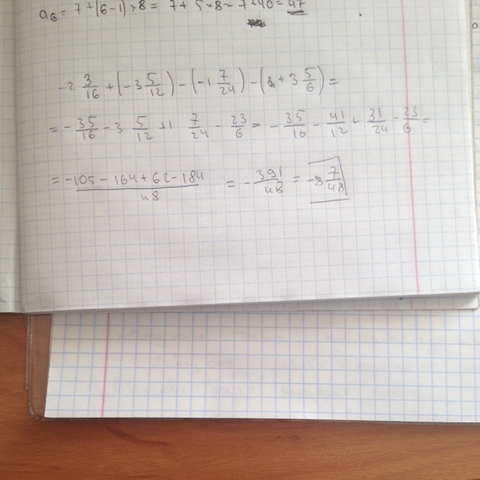 a₆ = 7 + (6-1) × 8 = 7 + 5 × 8 = 7 + 40 = 47
-2 3/16 + (-3 5/12) - (-1 7/24) - (+3 5/6) =
= -35/16 - 3 5/12 + 1 7/24 - 23/6 = -35/16 - 41/12 + 31/24 - 23/6 =
= (-105 - 164 + 62 - 184)/48 = -391/48 = -8 7/48